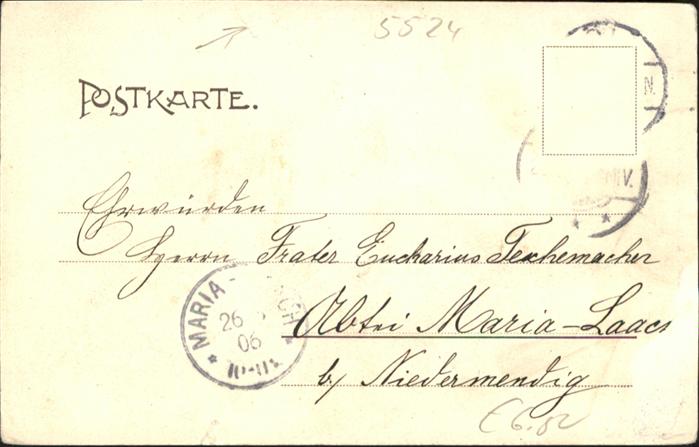 5524
POSTKARTE.
N.
V.
Ehrwürden
Herrn Frater Eucharius Teschemacher
Abtei Maria-Laach
b/ Niedermendig
MARIA-
26
06
€ 6.50